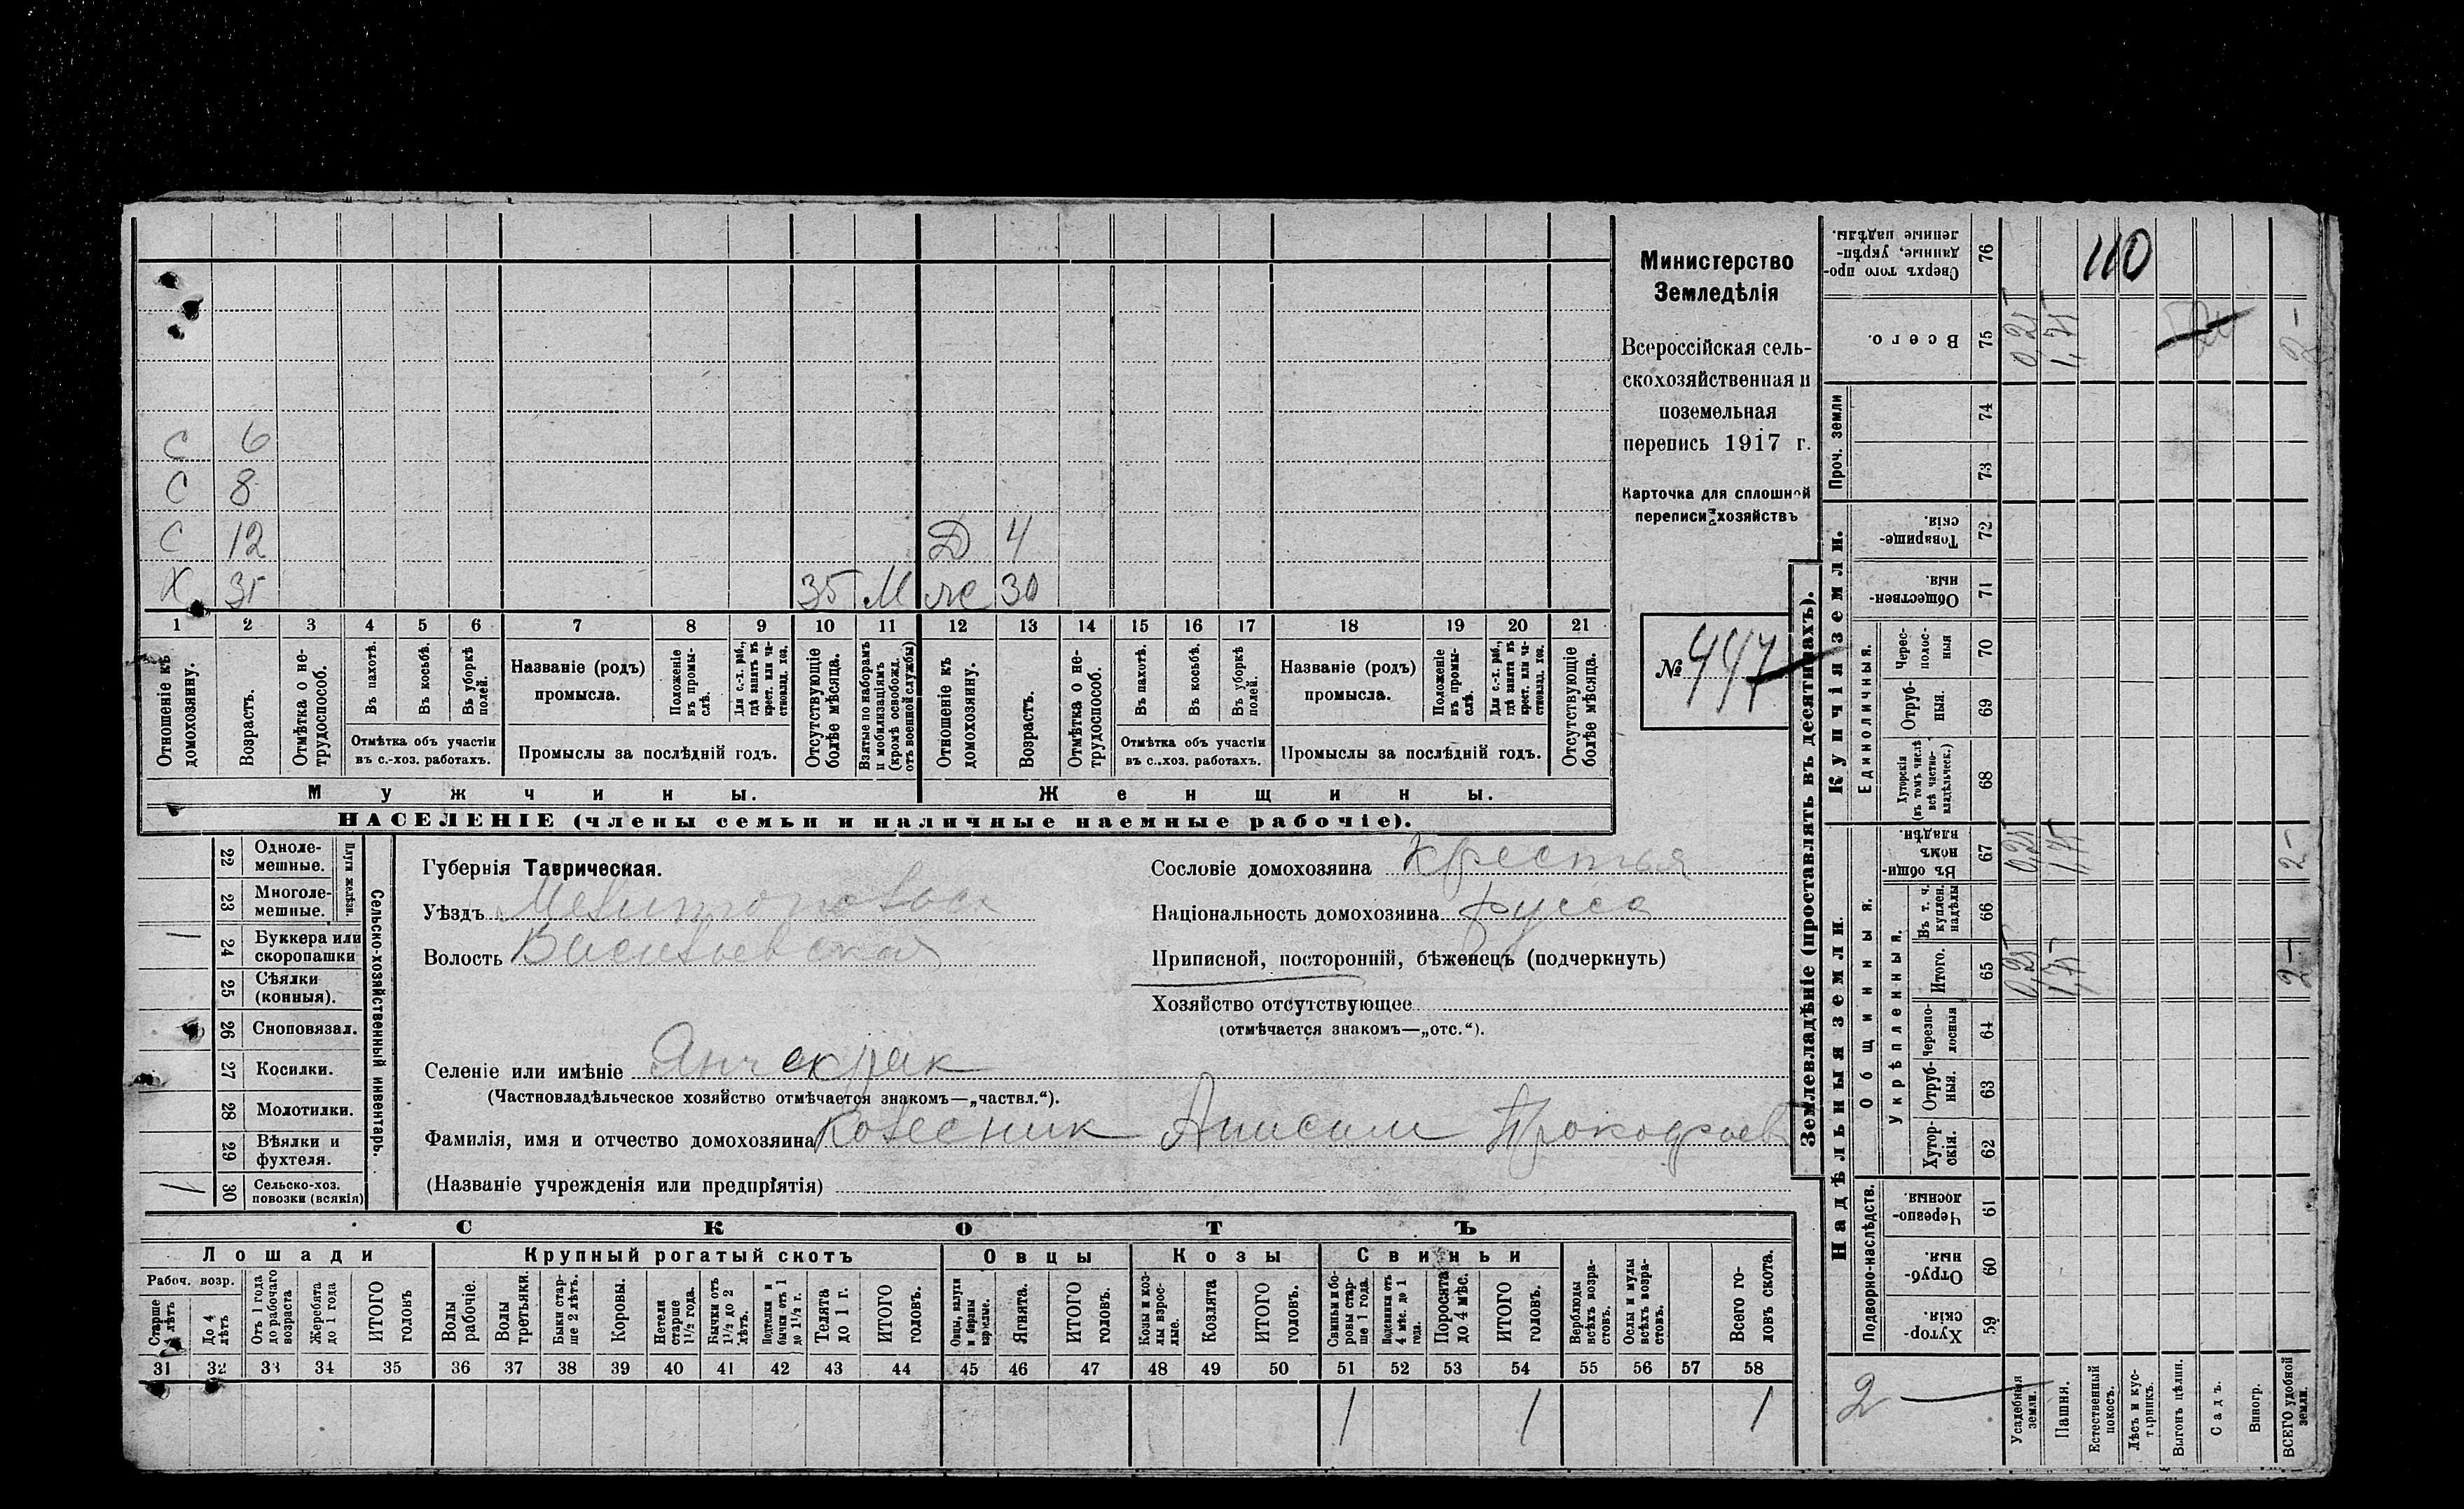 С 6
С 8
С 12 Д 4
Х 35 35 М же 30
1 2 3 4 5 6 7 8 9 10 11 12 13 14 15 16 17 18 19 20 21
Отношеніе къ домохозяину.
Возрастъ.
Отмѣтка о не-трудоспособ.
Въ пахотѣ.
Въ косьбѣ.
Въ уборкѣ полей.
Отмѣтка объ участіи
въ с.-хоз. работахъ.
Названіе (родъ)
промысла.
Положеніе въ промы-слѣ.
Для с.-х. раб., гдѣ занятъ въ крест. или ча-стновлад. хоз.
Промыслы за послѣдній годъ.
Отсутствующіе болѣе мѣсяца.
Взятые по наборамъ и мобилизаціямъ (кромѣ освобожд. отъ военной службы)
Отношеніе къ домохозяину.
Возрастъ.
Отмѣтка о не-трудоспособ.
Въ пахотѣ.
Въ косьбѣ.
Въ уборкѣ полей.
Отмѣтка объ участіи
въ с.-хоз. работахъ.
Названіе (родъ)
промысла.
Положеніе въ промы-слѣ.
Для с.-х. раб., гдѣ занята въ крест. или ча-стновлад. хоз.
Промыслы за послѣдній годъ.
Отсутствующіе болѣе мѣсяца.
Мужчины. Женщины.
НАСЕЛЕНІЕ (члены семьи и наличные наемные рабочіе).
Министерство
Земледѣлія
Всероссійская сель-
скохозяйственная и
поземельная
перепись 1917 г.
Карточка для сплошной
переписи хозяйствъ
№ 447
Сельско-хозяйственный инвентарь.
Плуги желѣзн.
22 Одноле-мешные.
23 Многоле-мешные.
1 24 Буккера или скоропашки
25 Сѣялки (конныя).
26 Сноповязал.
27 Косилки.
28 Молотилки.
29 Вѣялки и фухтеля.
1 30 Сельско-хоз. повозки (всякія)
Губернія Таврическая.
Уѣздъ Мелитопольск
Волость Васильевская
Селеніе или имѣніе Янчекрак
(Частновладѣльческое хозяйство отмѣчается знакомъ—„частвл.“).
Фамилія, имя и отчество домохозяина Колесник Анисим Прокофьев
(Названіе учрежденія или предпріятія)
Сословіе домохозяина Крестья
Національность домохозяина русс
Приписной, посторонній, бѣженецъ (подчеркнуть)
Хозяйство отсутствующее
(отмѣчается знакомъ—„отс.“).
СКОТЪ
Лошади Крупный рогатый скотъ Овцы Козы Свиньи
Рабоч. возр.
Старше 4 лѣтъ
До 4 лѣтъ
Отъ 1 года до рабочаго возраста
Жеребята до 1 года
ИТОГО головъ
Волы рабочіе.
Волы третьяки.
Быки стар-ше 2 лѣтъ.
Коровы.
Нетели старше 1½ года.
Бычки отъ 1½ до 2 лѣтъ.
Подтелки и бычки отъ 1 до 1½ г.
Телята до 1 г.
ИТОГО головъ.
Овцы, валухи и бараны взрослые.
Ягнята.
ИТОГО головъ.
Козы и коз-лы взрос-лые.
Козлята
ИТОГО головъ.
Свиньи и бо-ровы стар-ше 1 года.
Подсвинки отъ 4 мѣс. до 1 года.
Поросята до 4 мѣс.
ИТОГО головъ.
Верблюды всѣхъ возра-стовъ.
Ослы и мулы всѣхъ возра-стовъ.
Всего го-ловъ скота.
31 32 33 34 35 36 37 38 39 40 41 42 43 44 45 46 47 48 49 50 51 52 53 54 55 56 57 58
1 1 1
Землевладѣніе (проставлять въ десятинахъ).
Купчія земли.
Надѣльныя земли.
Проч. земли
Единоличныя.
Общинныя.
Укрѣпленныя.
Подворно-наслѣдств.
Сверхъ того про-данные, укрѣп-ленные надѣлы. 76 110
Всего. 75 0,25 1,75 2-
74
73
Товарище-скія. 72
Обществен-ныя. 71
Черес-полос-ныя 70
Отруб-ныя. 69
Хуторскія (въ томъ числѣ всѣ частно-владѣльческ.) 68
Въ общин-номъ владѣн. 67 0,25 1,75 2-
Въ т. ч. куплен. надѣлы 66
Итого. 65 0,25 1,75 2-
Черезпо-лосныя 64
Отруб-ныя. 63
Хутор-скія. 62
Черезпо-лосныя. 61
Отруб-ныя. 60
Хутор-скія. 59
2 —
Усадебныя земли.
Пашня.
Естественный покосъ.
Лѣсъ и кус-тарникъ.
Выгонъ цѣлин.
Садъ.
Виногр.
ВСЕГО удобной земли.